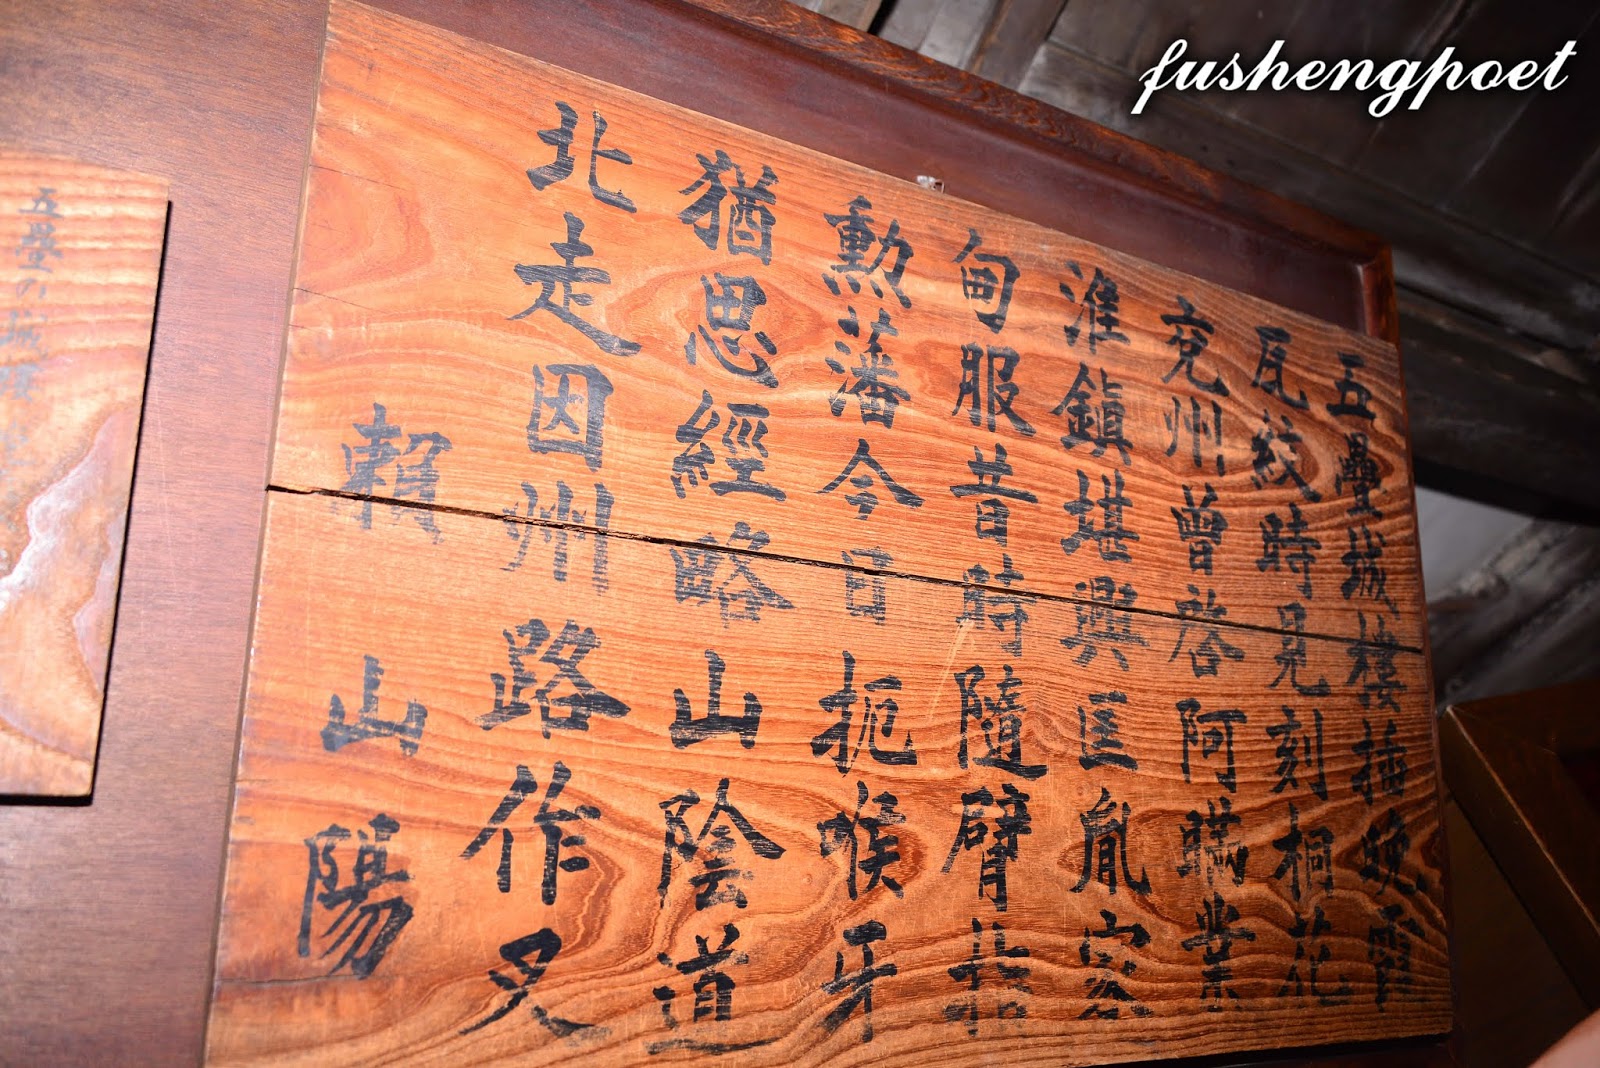 五疊城樓插晚霞
瓦紋時見刻桐花
兗州曾啓阿瞞業
淮鎮堪興匡胤家
甸服昔時隨臂指
勳藩今日扼喉牙
猶思經略山陰道
北走因州路作叉
賴山陽
五疊の城樓
fushengpoet